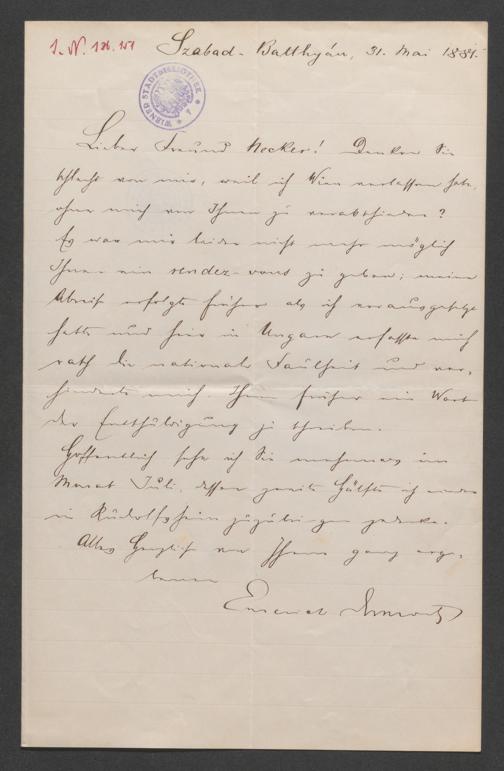 I. N. 126.151
Szabad-Batthyán, 31. Mai 1881.
WIENER STADTBIBLIOTHEK
Lieber Freund Necker! Denken Sie
schlecht von mir, weil ich Wien verlassen habe,
ohne mich von Ihnen zu verabschieden?
Es war mir leider nicht mehr möglich
Ihnen ein rendez-vous zu geben; meine
Abreise erfolgte früher als ich vorausgesetzt
hatte und hier in Ungarn erfasste mich
rasch die nationale Faulheit und ver-
hinderte mich Ihnen früher ein Wort
der Entschuldigung zu schreiben.
Hoffentlich sehe ich Sie im
Monat Juli, dessen zweite Hälfte ich
in Rudolfsheim zuzubringen gedenke.
Alles Herzliche von Ihrem ganz erge-
benen
Emerich